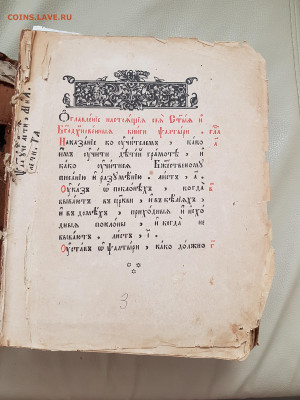 COINS.LAVE.RU
Ѡглавленїе настоѧщїѧ сеѧ ст҃ыѧ и҆
бг҃одꙋхновенныѧ книги ѱалтыри. гла
Наказанїе ко ᲂучителемъ, како
имъ ᲂучити дѣтей грамотѣ, и҆ а҃
како ᲂучитисѧ Бж҃ественомꙋ
писанїю и҆ разꙋмѣнїю. листъ, а҃.
Оуказъ ѡ поклонѣхъ, когда в҃
бываютъ въ црк҃ви и҆ въ келїѧхъ,
и҆ въ домѣхъ, приходныѧ и҆ исхо
дныѧ поклоны, и҆ когда не
бываютъ. листъ, і҃.
Оуставъ ѡ ѱалтыри, како должно г҃
3